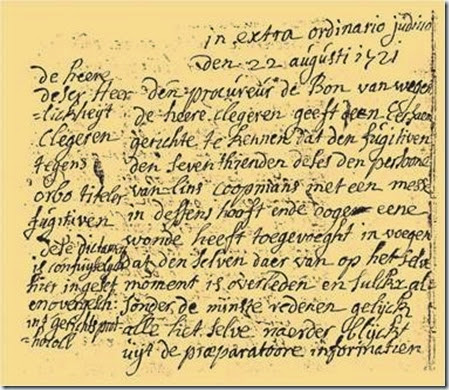 in extra ordinario judicio
den 22 augusti 1721
de heere
deser Heer
-lickheyt
Clegeren
tegens
titeler
fugitiven
dese
is confuyselyck
hier ingeset
en overgesch:
int gerichts prot-
hocoll
den procureur de Bon van wegen
de heere clegeren geeft deen
gerichte te kennen dat den fugitiven
den seventhienden deses den persoone
van Lins Coopmans met een mes
in deffens hooft ende ooge eene
wonde heeft toegevoeght in voegen
dat den selven daer van op het selve
moment is overleden en sulckx als
sonder de minste redenen gelyck
alle het selve naerder blyckt
uyt de præparatoore informatien